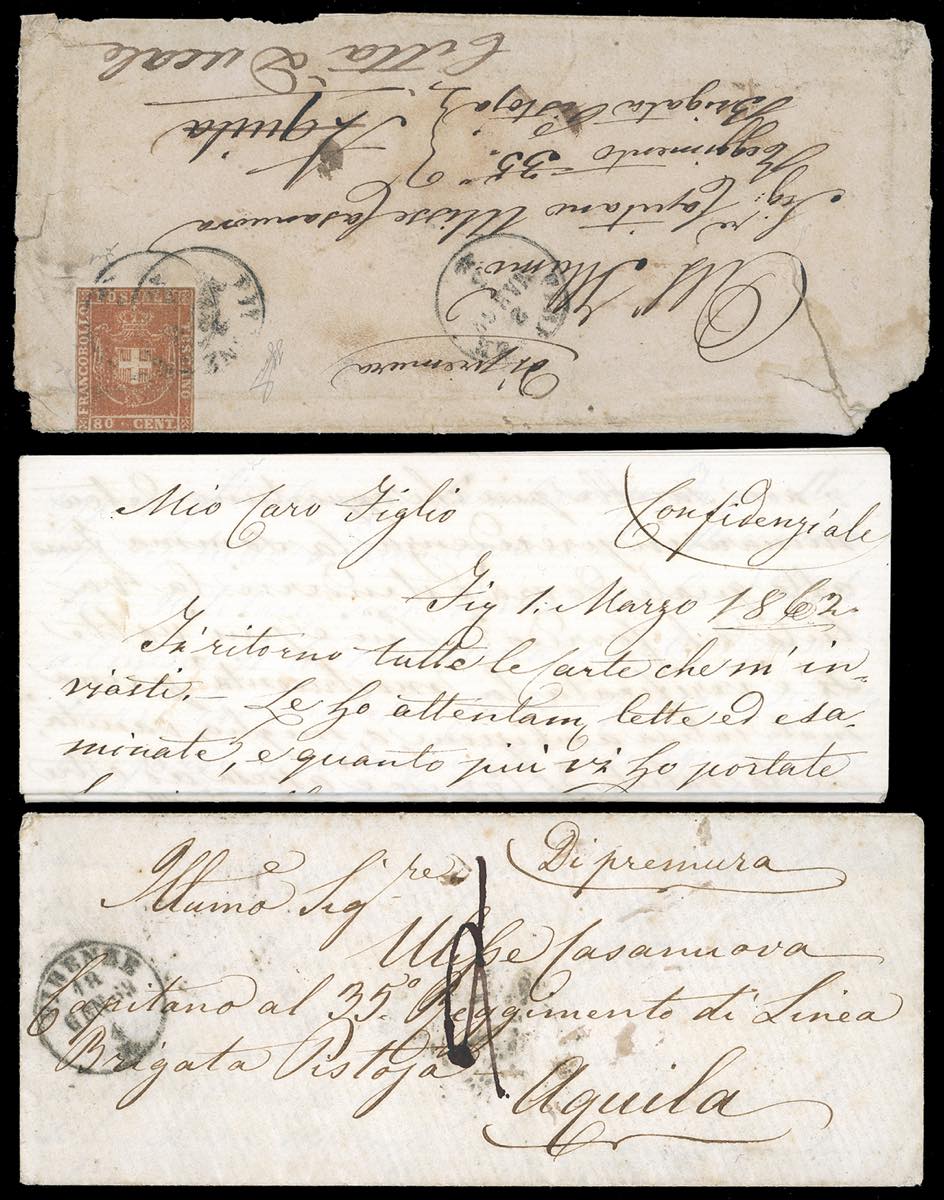 Città Ducale
Aquila
Brigata Pistoja
Reggimento 35.°
Sig.re Capitano Ulisse Casanuova
All' Illmo:
Di premura
FRANCOBOLLO
POSTALE
TOSCANO
80 CENT
Mio Caro Figlio
Confidenziale
Fig 1: Marzo 1862.
In ritorno tutte le carte che m' in-
viasti. – Le ho attentam, lette ed esa-
minate, e quanto più vi ho portate
Di premura
Illumo Sig.re
Ulisse Casanuova
Capitano al 35.° Reggimento di Linea
Brigata Pistoja
Aquila
FIRENZE
18
GEN